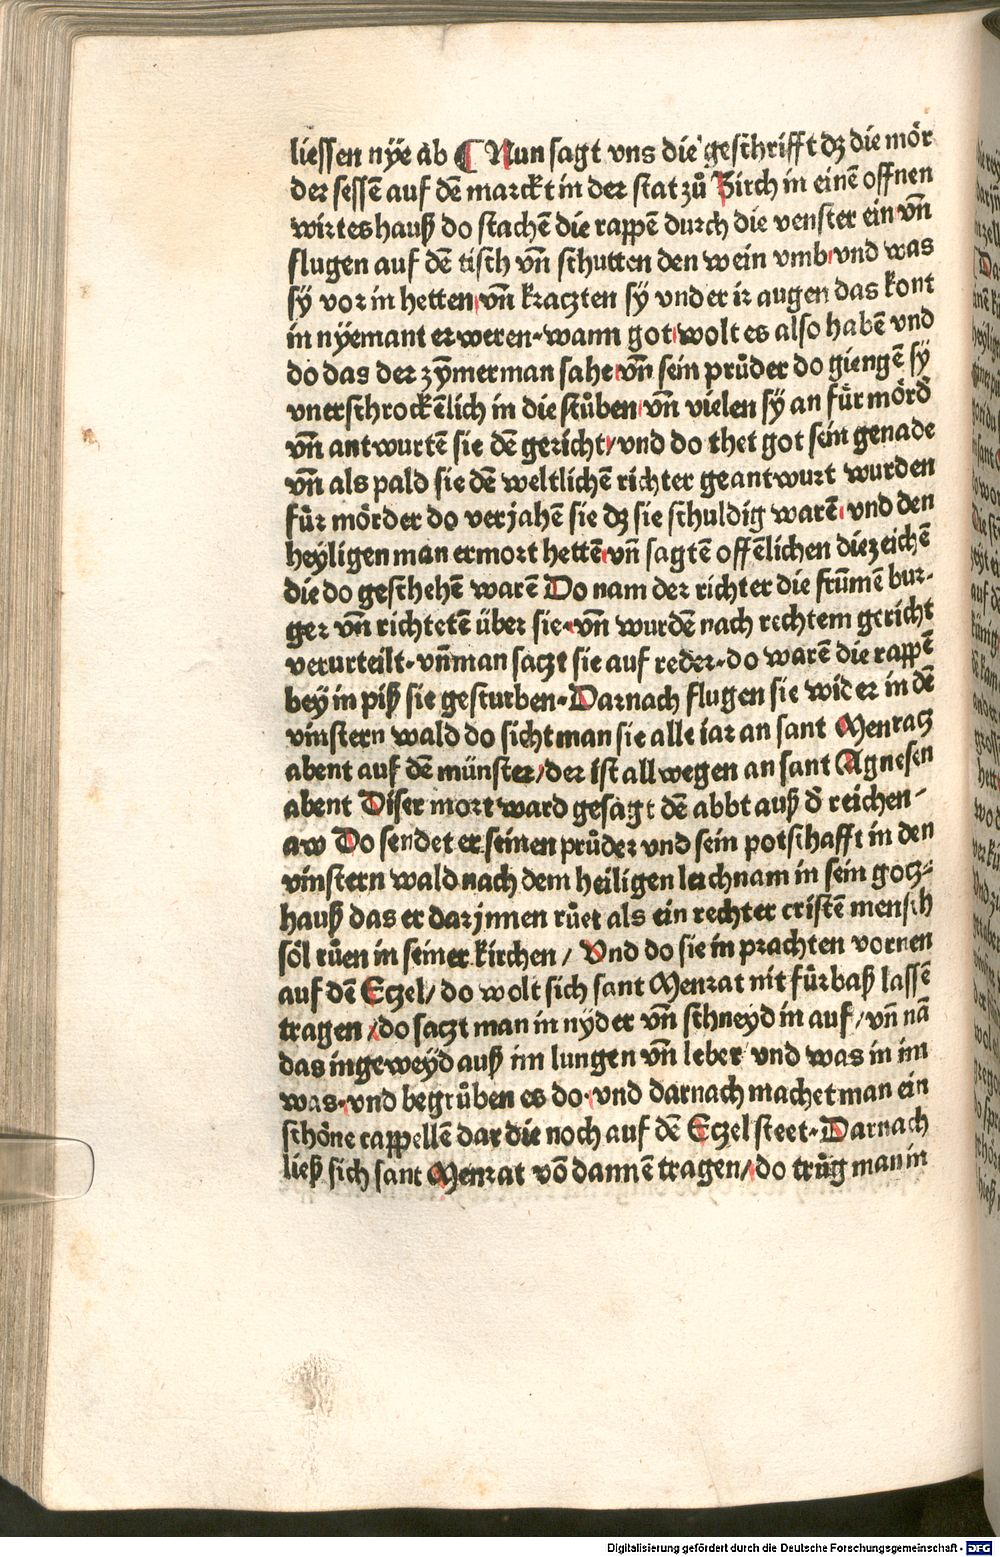 liessen nye ab ¶ Nun sagt vns die geschrifft dz die mör
der sessē auf dē marckt in der stat zů Zirch in einē offnen
wirteshauß do stachē die rappē durch die venster ein vn̄
flugen auf dē tisch vn̄ schutten den wein vmb vnd was
sy vor in hetten vn̄ kraczten sy vnder ir augen das kont
in nyemant erweren. wann got wolt es also habē vnd
do das der zȳmerman sahe vn̄ sein průder do giengē sy
vnerschrockēlich in die stůben vn̄ vielen sy an für mörd̄
vn̄ antwurtē sie dē gericht/ vnd do thet got sein genade
vn̄ als pald sie dē weltlichē richter geantwurt wurden
für mörder do verjahē sie dz sie schuldig warē vnd den
heyligen man ermort hettē vn̄ sagtē offēlichen die zeichē
die do geschehē warē Do nam der richter die frūmē bur-
ger vn̄ richtetē über sie. vn̄ wurdē nach rechtem gericht
verurteilt. vn̄ man saczt sie auf reder. do warē die rappē
bey in piß sie gesturben. Darnach flugen sie wider in dē
vinstern wald do sicht man sie alle iar an sant Menracz
abent auf dē münster/ der ist allwegen an sant Agnesen
abent Diser mort ward gesagt dē abbt auß d̄ reichen-
aw Do sendet er seinen průder vnd sein potschafft in den
vinstern wald nach dem heiligen leichnam in sein gocz-
hauß das er darjnnen růet als ein rechter cristē mensch
sol růen in seiner kirchen / Vnd do sie in prachten vornen
auf dē Eczel/ do wolt sich sant Menrat nit fürbaß lassē
tragen / do saczt man in nyder vn̄ schneyd in auf/ vn̄ nā
das ingeweyd auß im lungen vn̄ leber vnd was in im
was. vnd begrůben es do. vnd darnach machet man ein
schöne cappellē dar die noch auf dē Eczel steet. Darnach
ließ sich sant Menrat vō dannē tragen/ do trůg man in
Digitalisierung gefördert durch die Deutsche Forschungsgemeinschaft - DFG